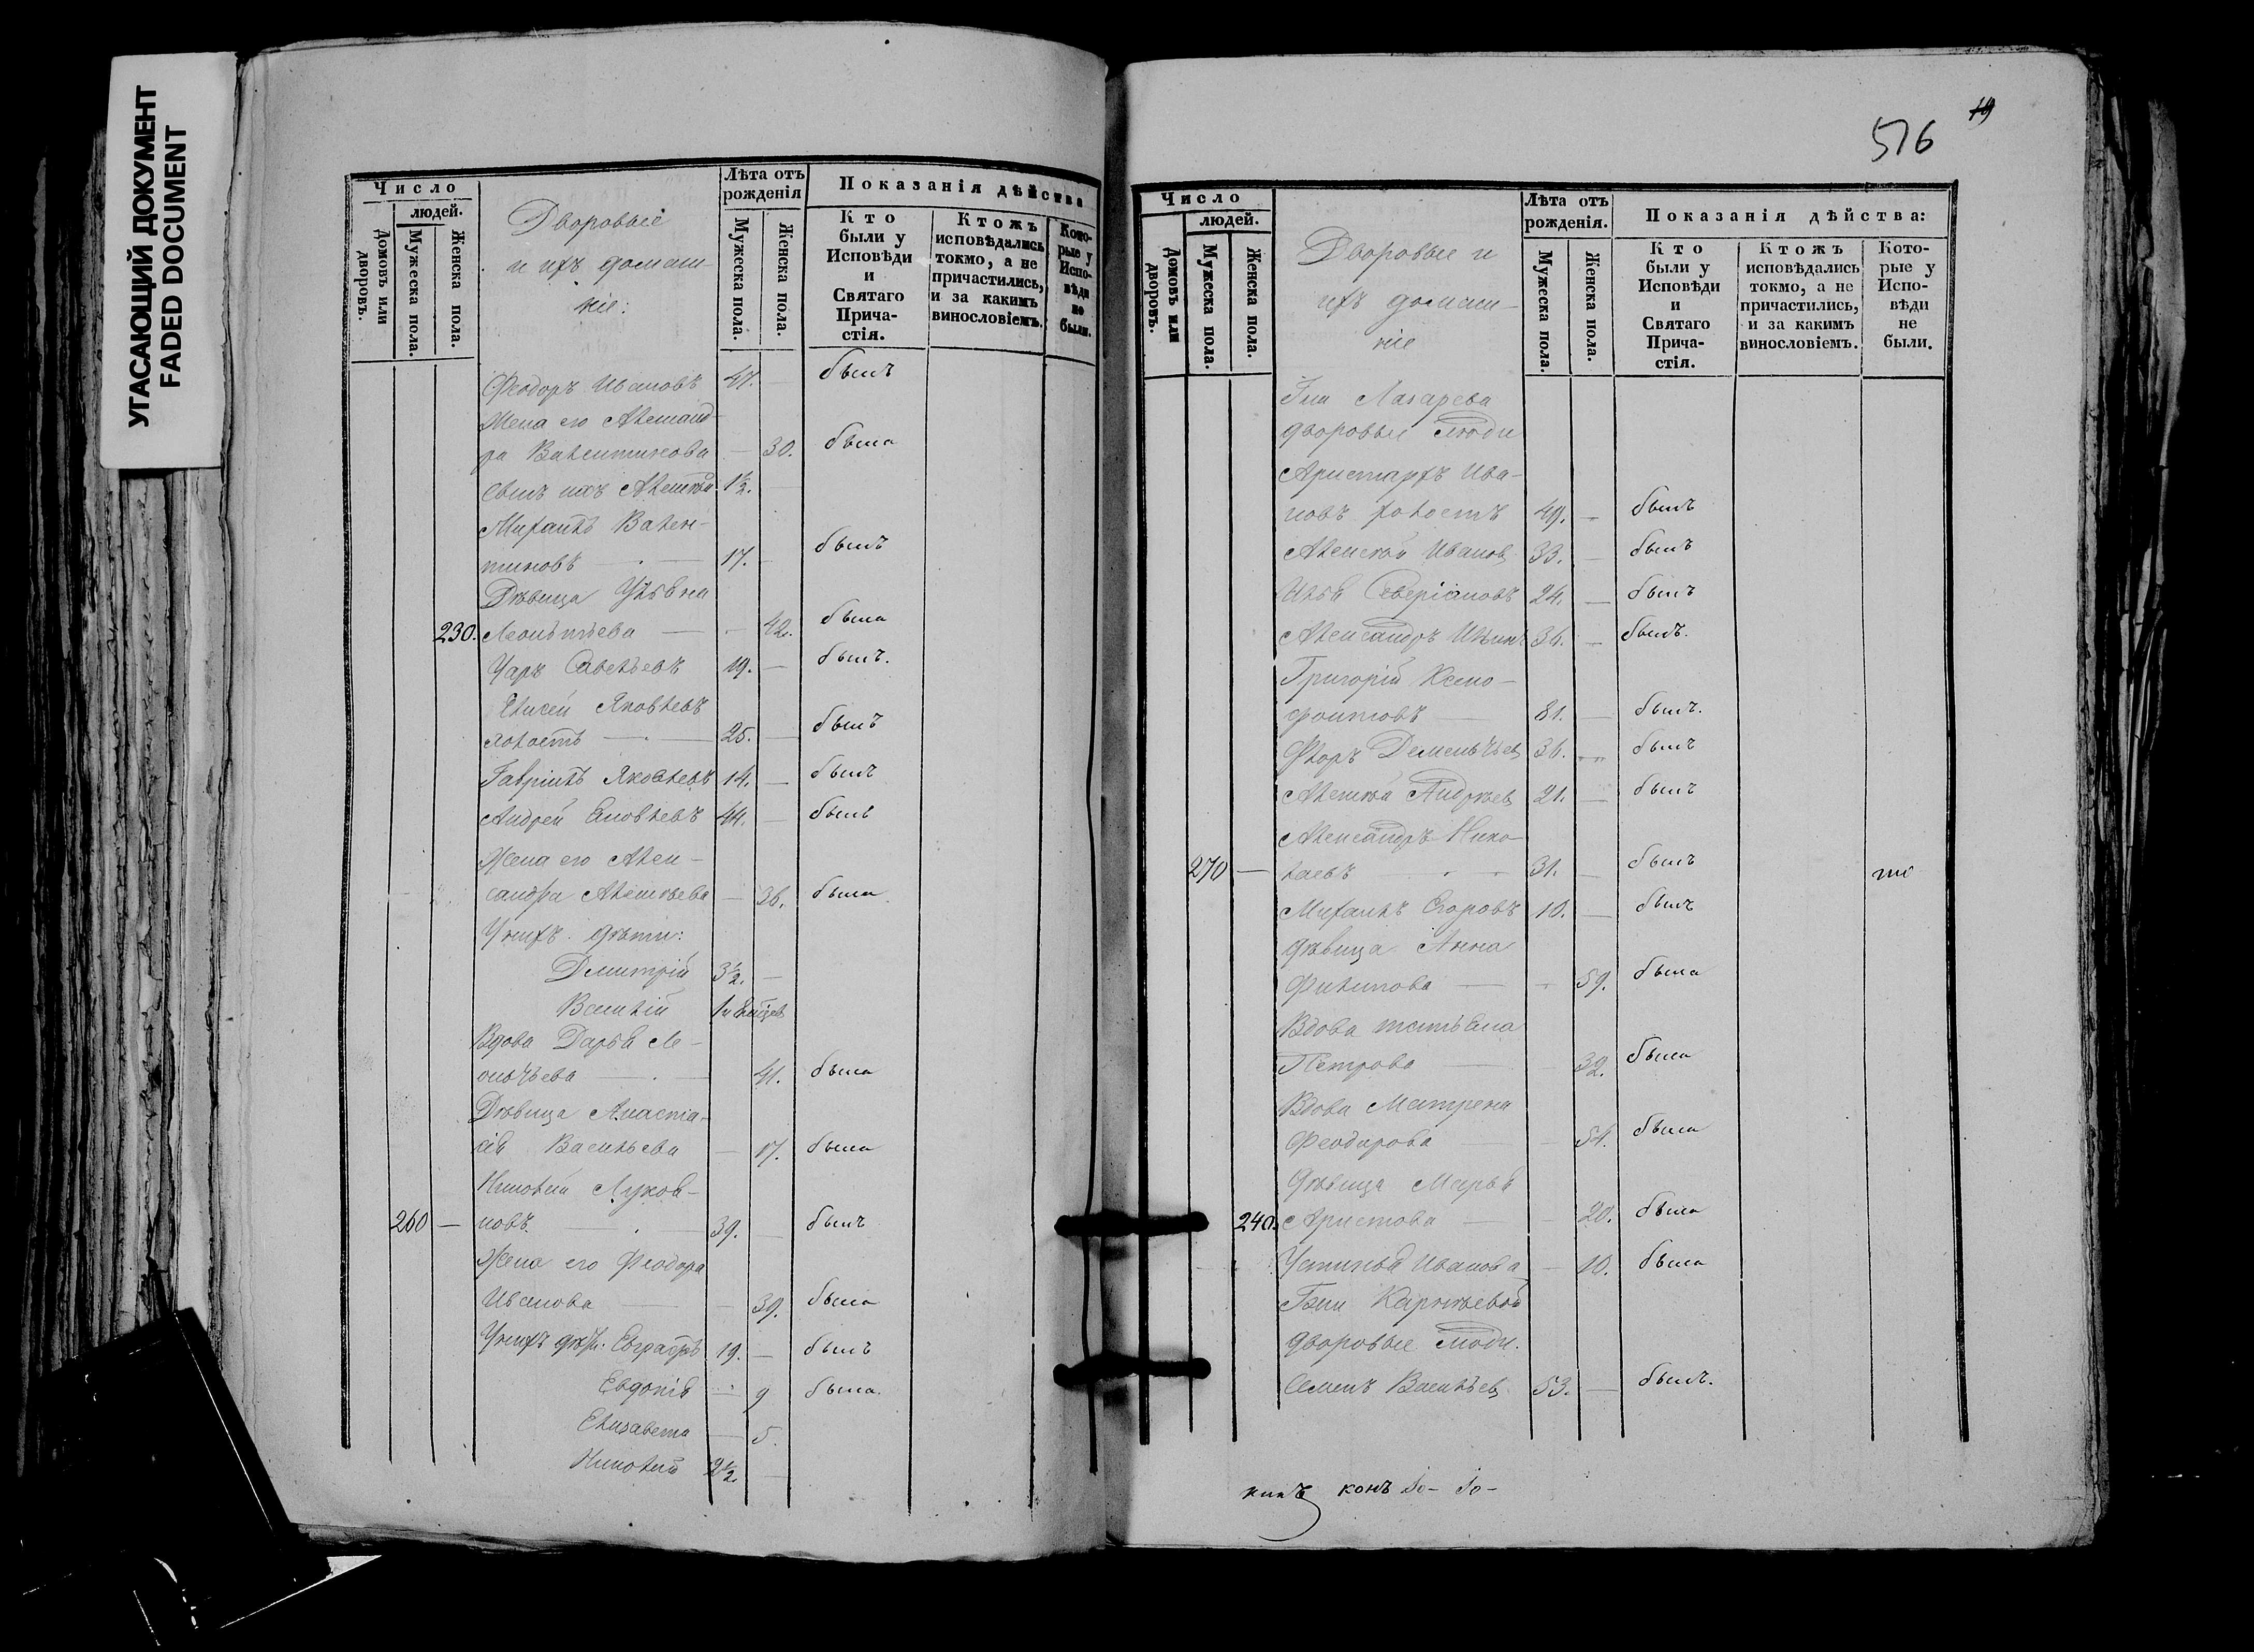 УГАСАЮЩИЙ ДОКУМЕНТ
FADED DOCUMENT
Число
людей.
Домовъ или дворовъ.
Мужеска пола.
Женска пола.
Дворовые
и ихъ домаш-
ніе:
Лѣта отъ
рожденія
Мужеска пола.
Женска пола.
Показанія дѣйства
Кто
были у
Исповѣди
и
Святаго
Прича-
стія.
Ктожъ
исповѣдались
токмо, а не
причастились,
и за какимъ
винословіемъ.
Кото-
рые у
Испо-
вѣди
не
были.
Феодоръ Ивановъ 47. — былъ
Жена его Александ-
ра Валентинова — 30. была
сынъ ихъ Алексѣй 1½. —
Михаилъ Вален-
тиновъ — 17. — былъ
Дѣвица Ульяна
230. Леонтьева — — 42. была
Уаръ Савельевъ 19. — былъ.
Елисей Яковлевъ
холостъ — 25. — былъ
Гавріилъ Яковлевъ 14. — былъ
Андрей Яковлевъ 44. — былъ
Жена его Алек-
сандра Алексѣева — 36. была
У нихъ дѣти:
Дмитрій 3½. —
Василій
Вдова Дарья Ле-
онтьева — 41. была
Дѣвица Анаста-
сія Васильева — 17. была
260 — новъ — 39. — былъ
Жена его Феодора
Иванова — — 39. была
У нихъ дѣти: Евграфъ 19. — былъ
Евдокія — 9 была.
Елизавета — 5.
2½. —
19
516
Число
людей.
Домовъ или дворовъ.
Мужеска пола.
Женска пола.
Дворовые и
ихъ домаш-
ніе
Лѣта отъ
рожденія.
Мужеска пола.
Женска пола.
Показанія дѣйства:
Кто
были у
Исповѣди
и
Святаго
Прича-
стія.
Ктожъ
исповѣдались
токмо, а не
причастились,
и за какимъ
винословіемъ.
Кото-
рые у
Испо-
вѣди
не
были.
Гжи Лазарева
дворовые люди
Аристархъ Ива-
новъ холостъ 49. — былъ
Алексѣй Иванов 33. — былъ
Илья Северіановъ 24. — былъ
Александръ Ильинъ 36. — былъ.
Григорій Ксено-
фонтовъ — 81. — былъ.
Флоръ Дементьев 36. — былъ
Алексѣй Андреев 21. — былъ
Александръ Нико-
270 — лаевъ — 31. — былъ
Михаилъ Егоровъ 10. — былъ
дѣвица Анна
Филипова — — 59. была
Вдова татьяна
Петрова — 32. была
Вдова Матрена
Феодорова — — 54. была
Дѣвица Марья
240. Аристова — — 20. была
Устинья Иванова — 10. была
дворовые люди.
Семенъ Васильев 53. — былъ.